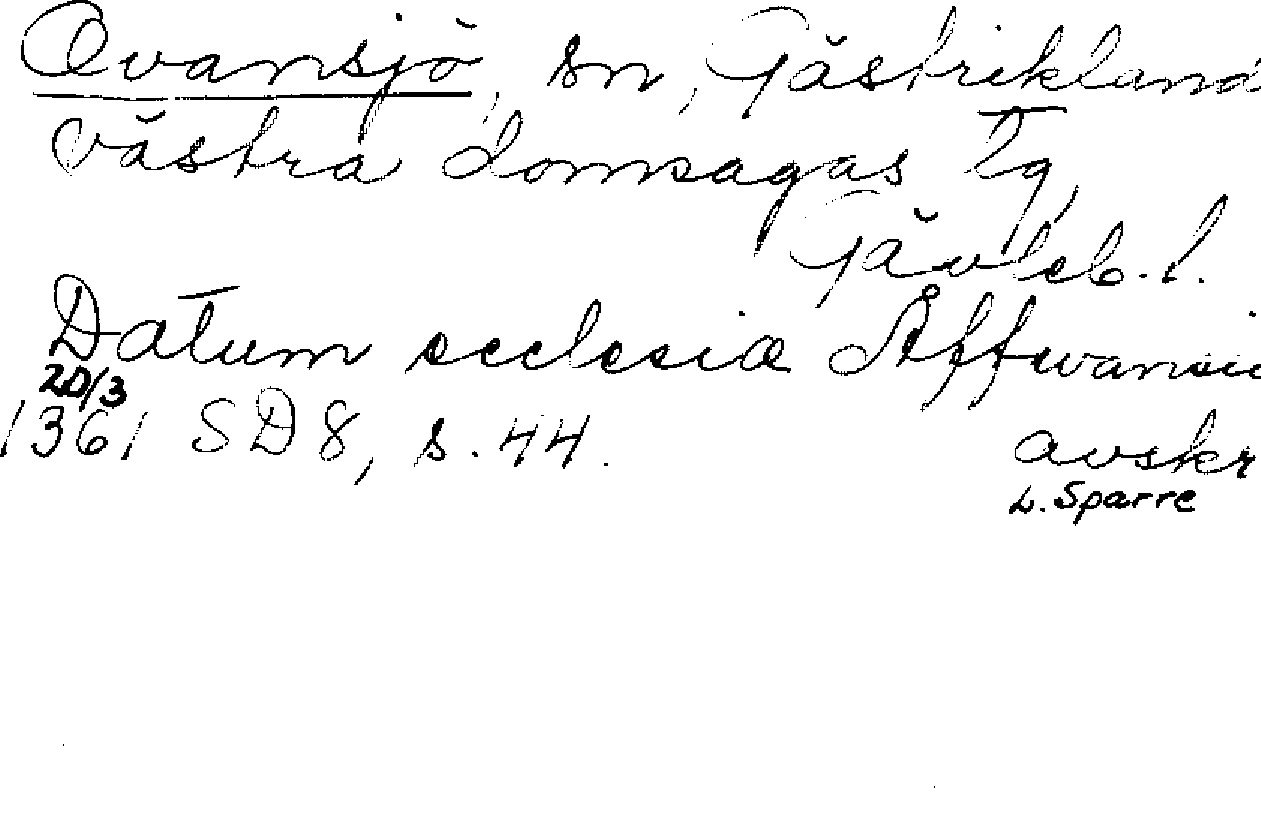 Ovansjö, sn, Gästrikland
västra domsagas Tg,
Gävleb. l.
Datum ecclesiæ Åffwansii
20/3
1361 SD 8, s. 44.
avskr
L. Sparre